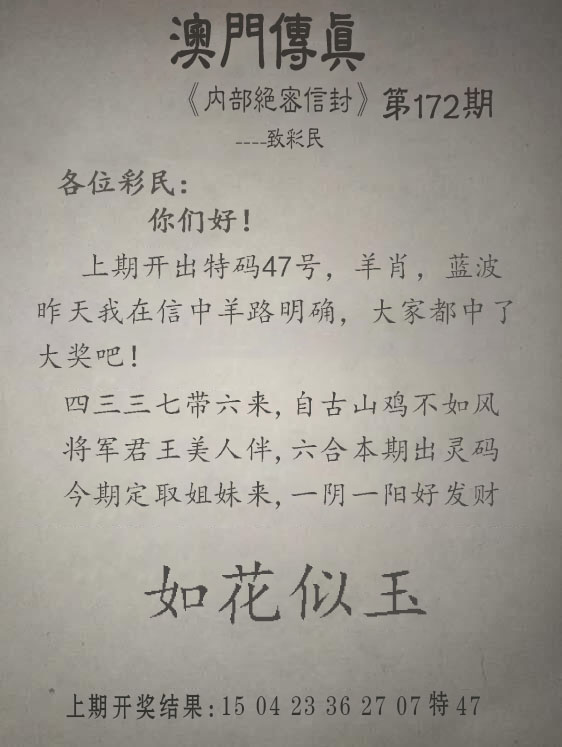 澳門傳眞
《内部絕密信封》第172期
----致彩民
各位彩民:
你们好!
上期开出特码47号，羊肖，蓝波
昨天我在信中羊路明确，大家都中了
大奖吧!
四三三七带六来,自古山鸡不如风
将军君王美人伴,六合本期出灵码
今期定取姐妹来,一阴一阳好发财
如花似玉
上期开奖结果:15 04 23 36 27 07特47